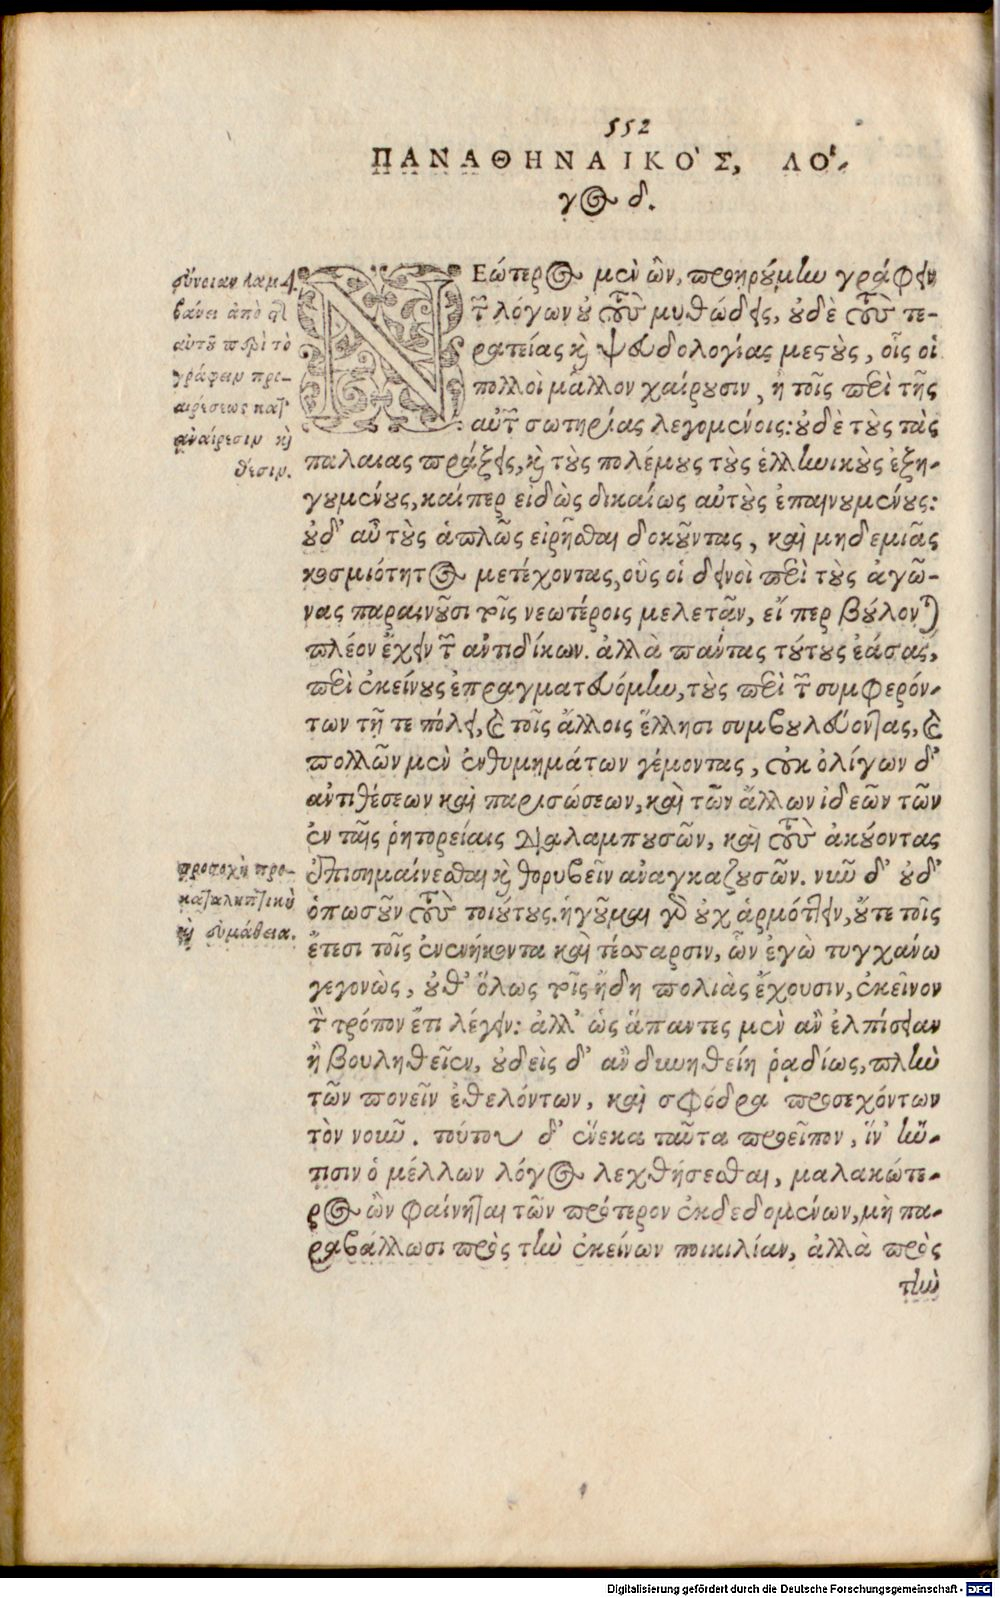 552
ΠΑΝΑΘΗΝΑΙΚΟ'Σ, ΛΟ'-
γος δ.
εὔνοιαν λαμ-
βάνει ἀπὸ τῆς
αὐτοῦ περὶ τὸ
γράφειν προ-
αιρέσεως κατ'
ἀναίρεσιν καὶ
θέσιν.
ΝΕώτερος μὲν ὢν, προῃρούμην γράφειν
τῶν λόγων οὐ τοὺς μυθώδεις, οὐδὲ τοὺς τε-
ρατείας καὶ ψευδολογίας μεστοὺς, οἷς οἱ
πολλοὶ μᾶλλον χαίρουσιν, ἢ τοῖς περὶ τῆς
αὐτῶν σωτηρίας λεγομένοις: οὐδὲ τοὺς τὰς
παλαιας πράξεις, καὶ τοὺς πολέμους τοὺς ἑλληνικοὺς ἐξη-
γουμένους, καίπερ εἰδὼς δικαίως αὐτοὺς ἐπαινουμένους:
οὐδ' αὖ τοὺς ἁπλῶς εἰρῆσθαι δοκοῦντας, καὶ μηδεμιᾶς
κοσμιότητος μετέχοντας, οὓς οἱ δεινοὶ περὶ τοὺς ἀγῶ-
νας παραινοῦσι τοῖς νεωτέροις μελετᾶν, εἴ περ βούλονται
πλέον ἔχειν τῶν ἀντιδίκων. ἀλλὰ πάντας τούτους ἐάσας,
περὶ ἐκείνους ἐπραγματευόμην, τοὺς περὶ τῶν συμφερόν-
των τῇ τε πόλει, καὶ τοῖς ἄλλοις ἕλλησι συμβουλεύοντας, καὶ
πολλῶν μὲν ἐνθυμημάτων γέμοντας, οὐκ ὀλίγων δ'
ἀντιθέσεων καὶ παρισώσεων, καὶ τῶν ἄλλων ἰδεῶν τῶν
ἐν ταῖς ῥητορείαις διαλαμπουσῶν, καὶ τοὺς ἀκούοντας
προσοχὴ προ-
καταληπτικοῦ
καὶ εὐμάθεια.
ἐπισημαίνεσθαι καὶ θορυβεῖν ἀναγκαζουσῶν. νῦν δ' οὐδ'
ὁπωσοῦν τοὺς τοιούτους. ἡγοῦμαι γὰρ οὐχ ἁρμόττειν, οὔτε τοῖς
ἔτεσι τοῖς ἐνενήκοντα καὶ τέσσαρσιν, ὧν ἐγὼ τυγχάνω
γεγονὼς, οὐθ' ὅλως τοῖς ἤδη πολιὰς ἔχουσιν, ἐκεῖνον
τὸν τρόπον ἔτι λέγειν: ἀλλ' ὡς ἅπαντες μὲν ἂν ἐλπίσειαν
ἢ βουληθεῖεν, οὐδεὶς δ' ἂν δυνηθείη ῥᾳδίως, πλὴν
τῶν πονεῖν ἐθελόντων, καὶ σφόδρα προσεχόντων
τὸν νοῦν. τούτου δ' ἕνεκα ταῦτα προεῖπον, ἵν' ἤν
τισιν ὁ μέλλων λόγος λεχθήσεσθαι, μαλακώτε-
ρος ὢν φαίνηται τῶν πρότερον ἐκδεδομένων, μὴ πα-
ραβάλλωσι πρὸς τὴν ἐκείνων ποικιλίαν, ἀλλὰ πρὸς
τὴν
Digitalisierung gefördert durch die Deutsche Forschungsgemeinschaft - DFG